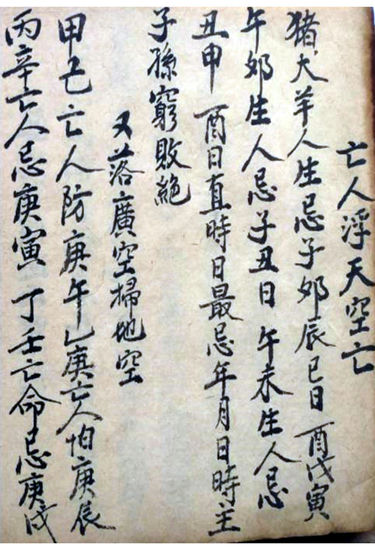 亡人浮天空亡
猪大羊人生忌子卯辰巳日 酉戌寅
午卯生人忌子丑日 午未生人忌
丑申 酉日直時日最忌年月日時主
子孫窮敗絶
又落廣空掃地空
甲己亡人防庚午 乙庚亡人怕庚辰
丙辛亡人忌庚寅 丁壬亡命忌庚戌